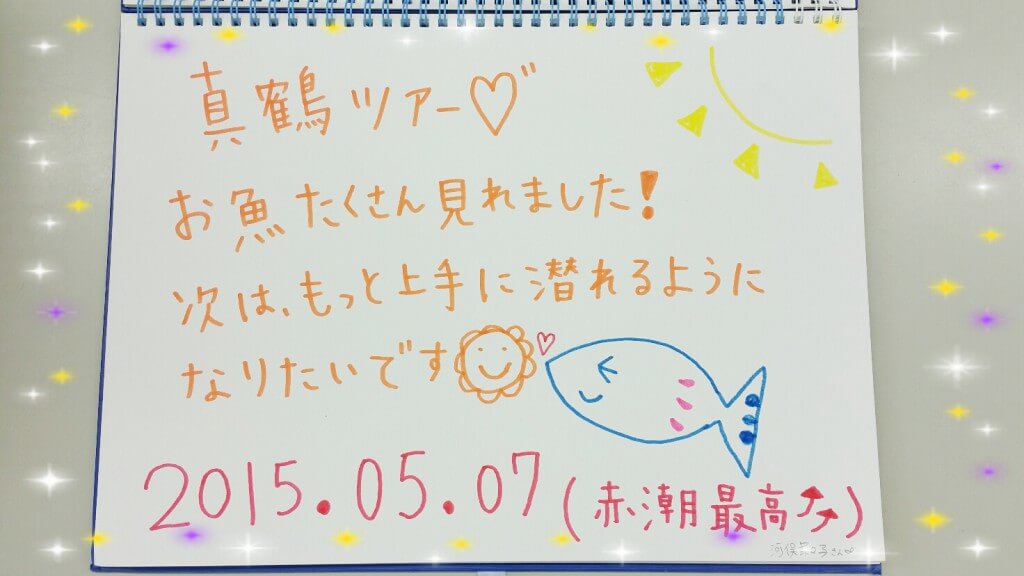 真鶴ツアー♡
お魚たくさん見れました!
次は、もっと上手に潜れるように
なりたいです
2015.05.07(赤潮最高⤴⤴)